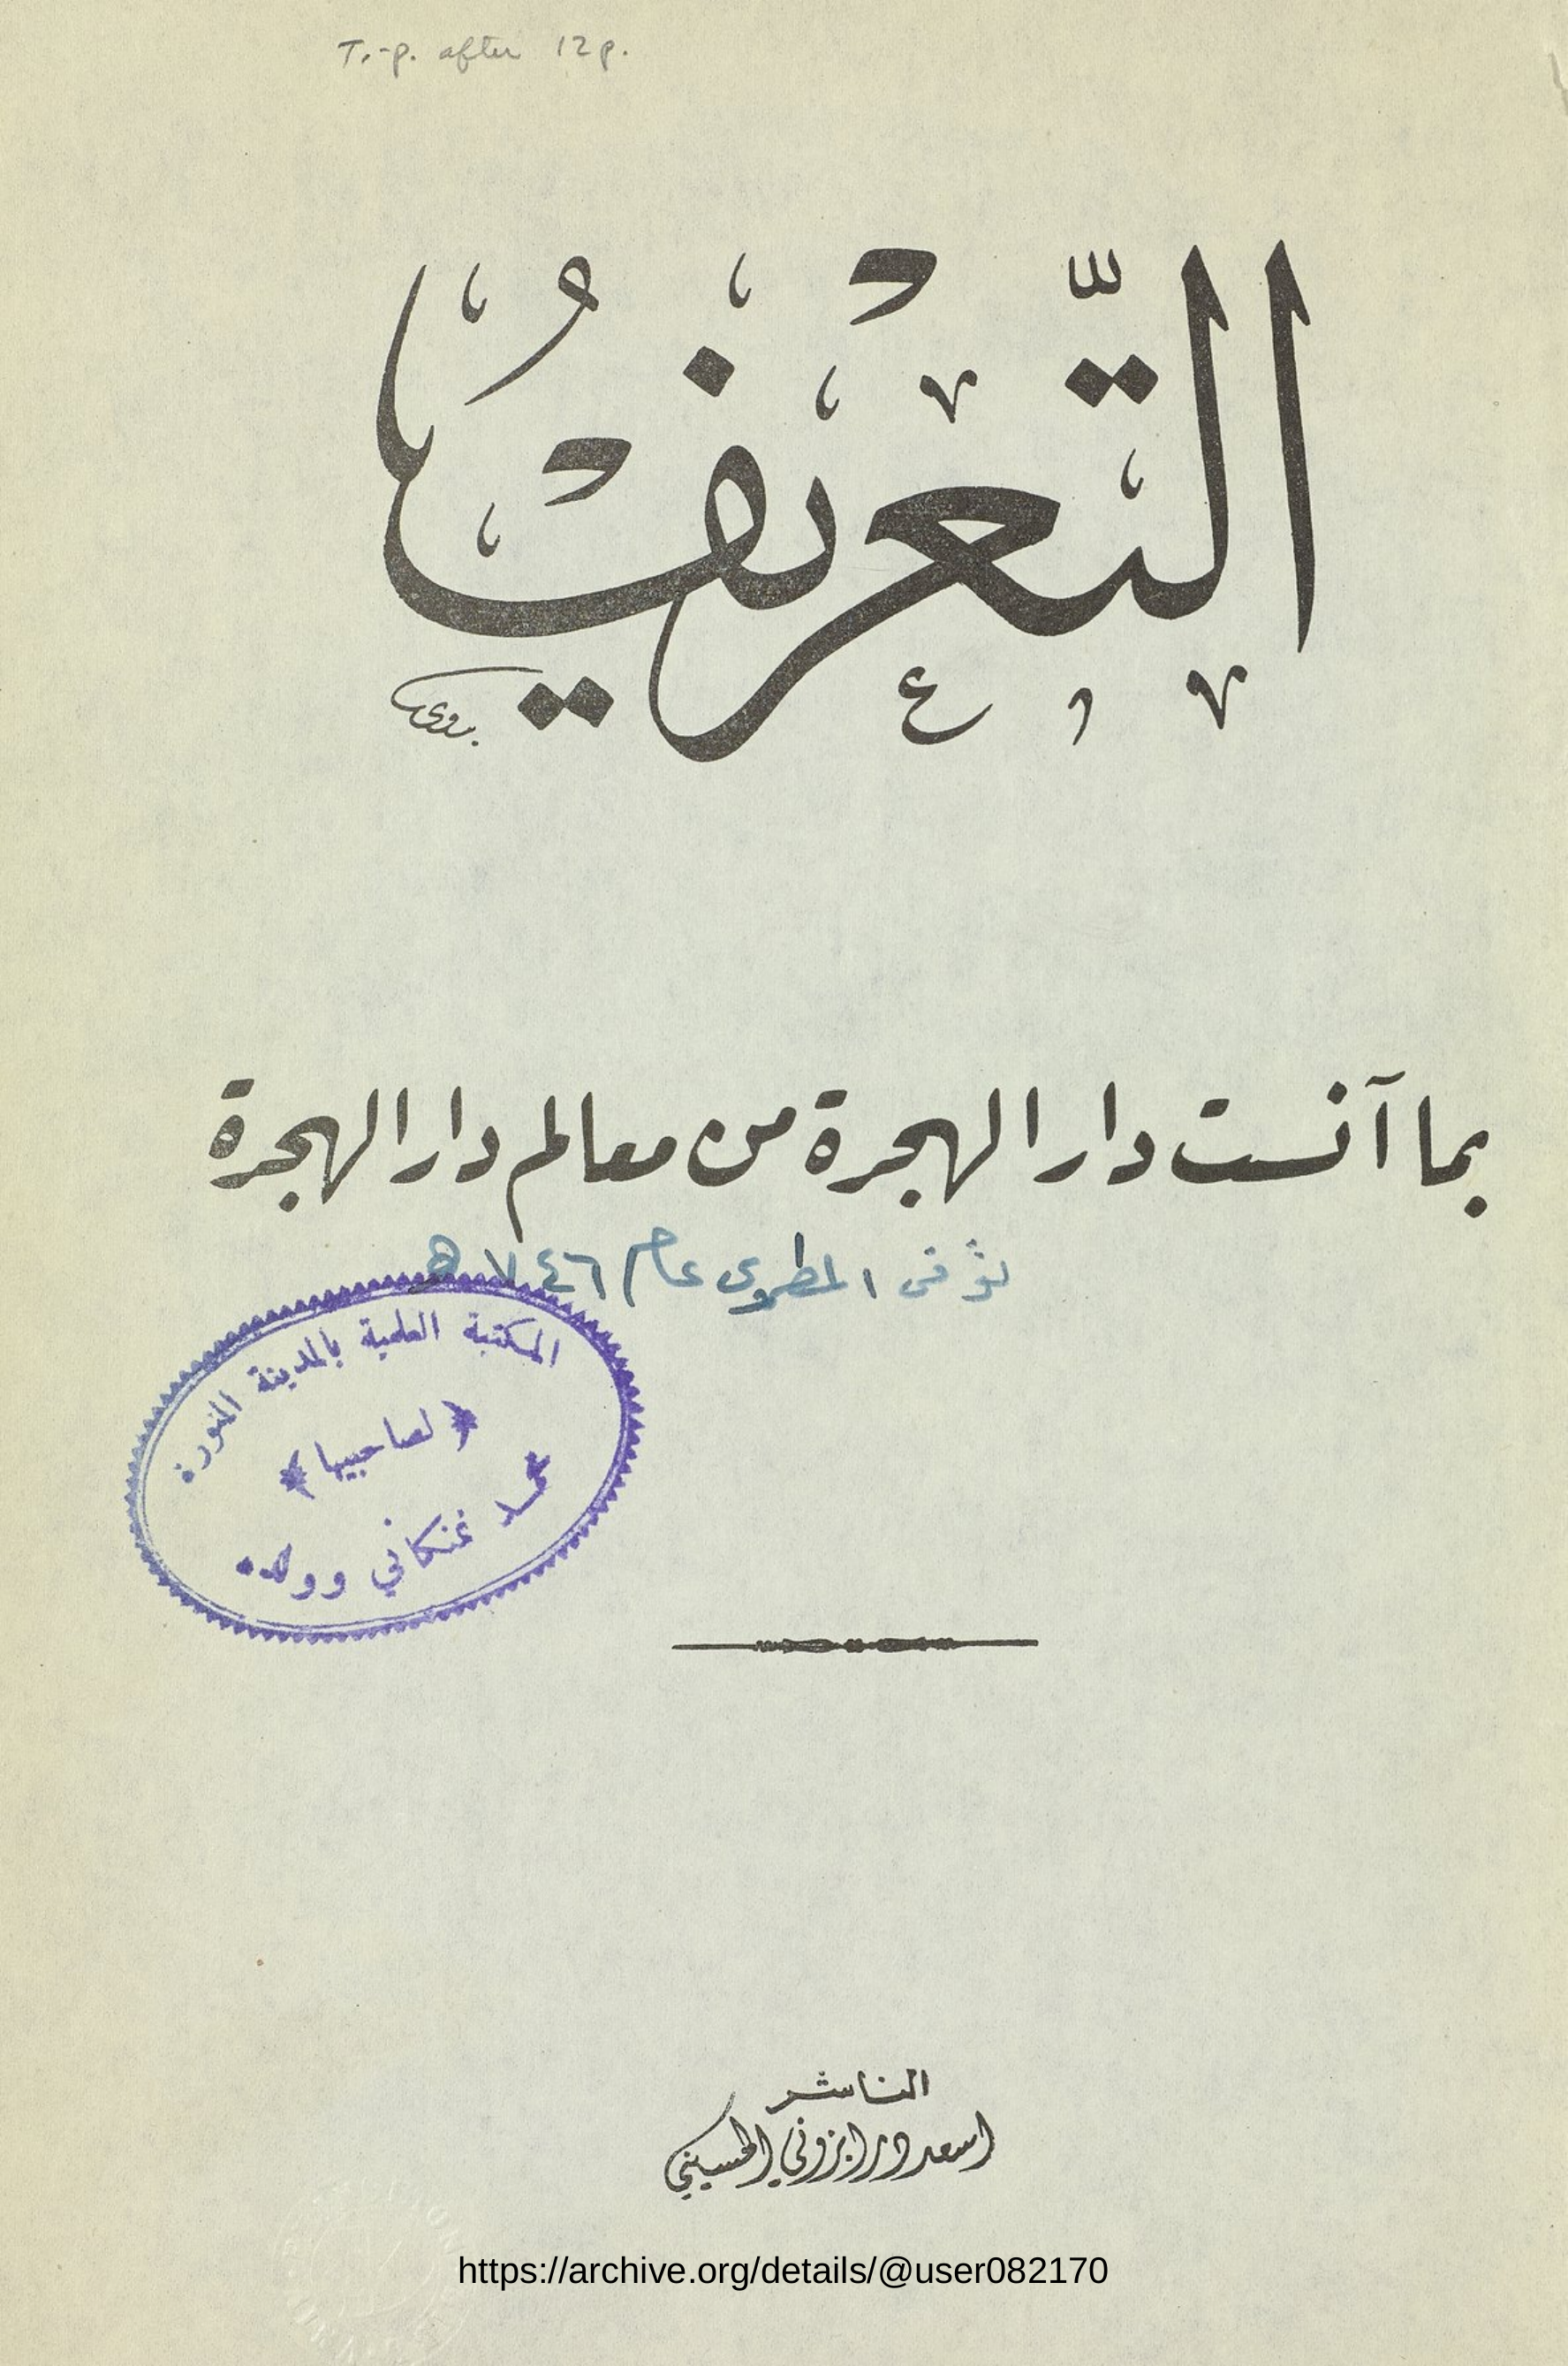 T.-p. after 12 p.
التَّعْرِيفُ
بدوى
بما آنست دار الهجرة من معالم دار الهجرة
توفى المطرى عام ٧٤٦ هـ
المكتبة العلمية بالمدينة المنورة
لصاحبيها
محمد نمنكاني وولده
الناشر
اسعد درابزوني الحسيني
https://archive.org/details/@user082170